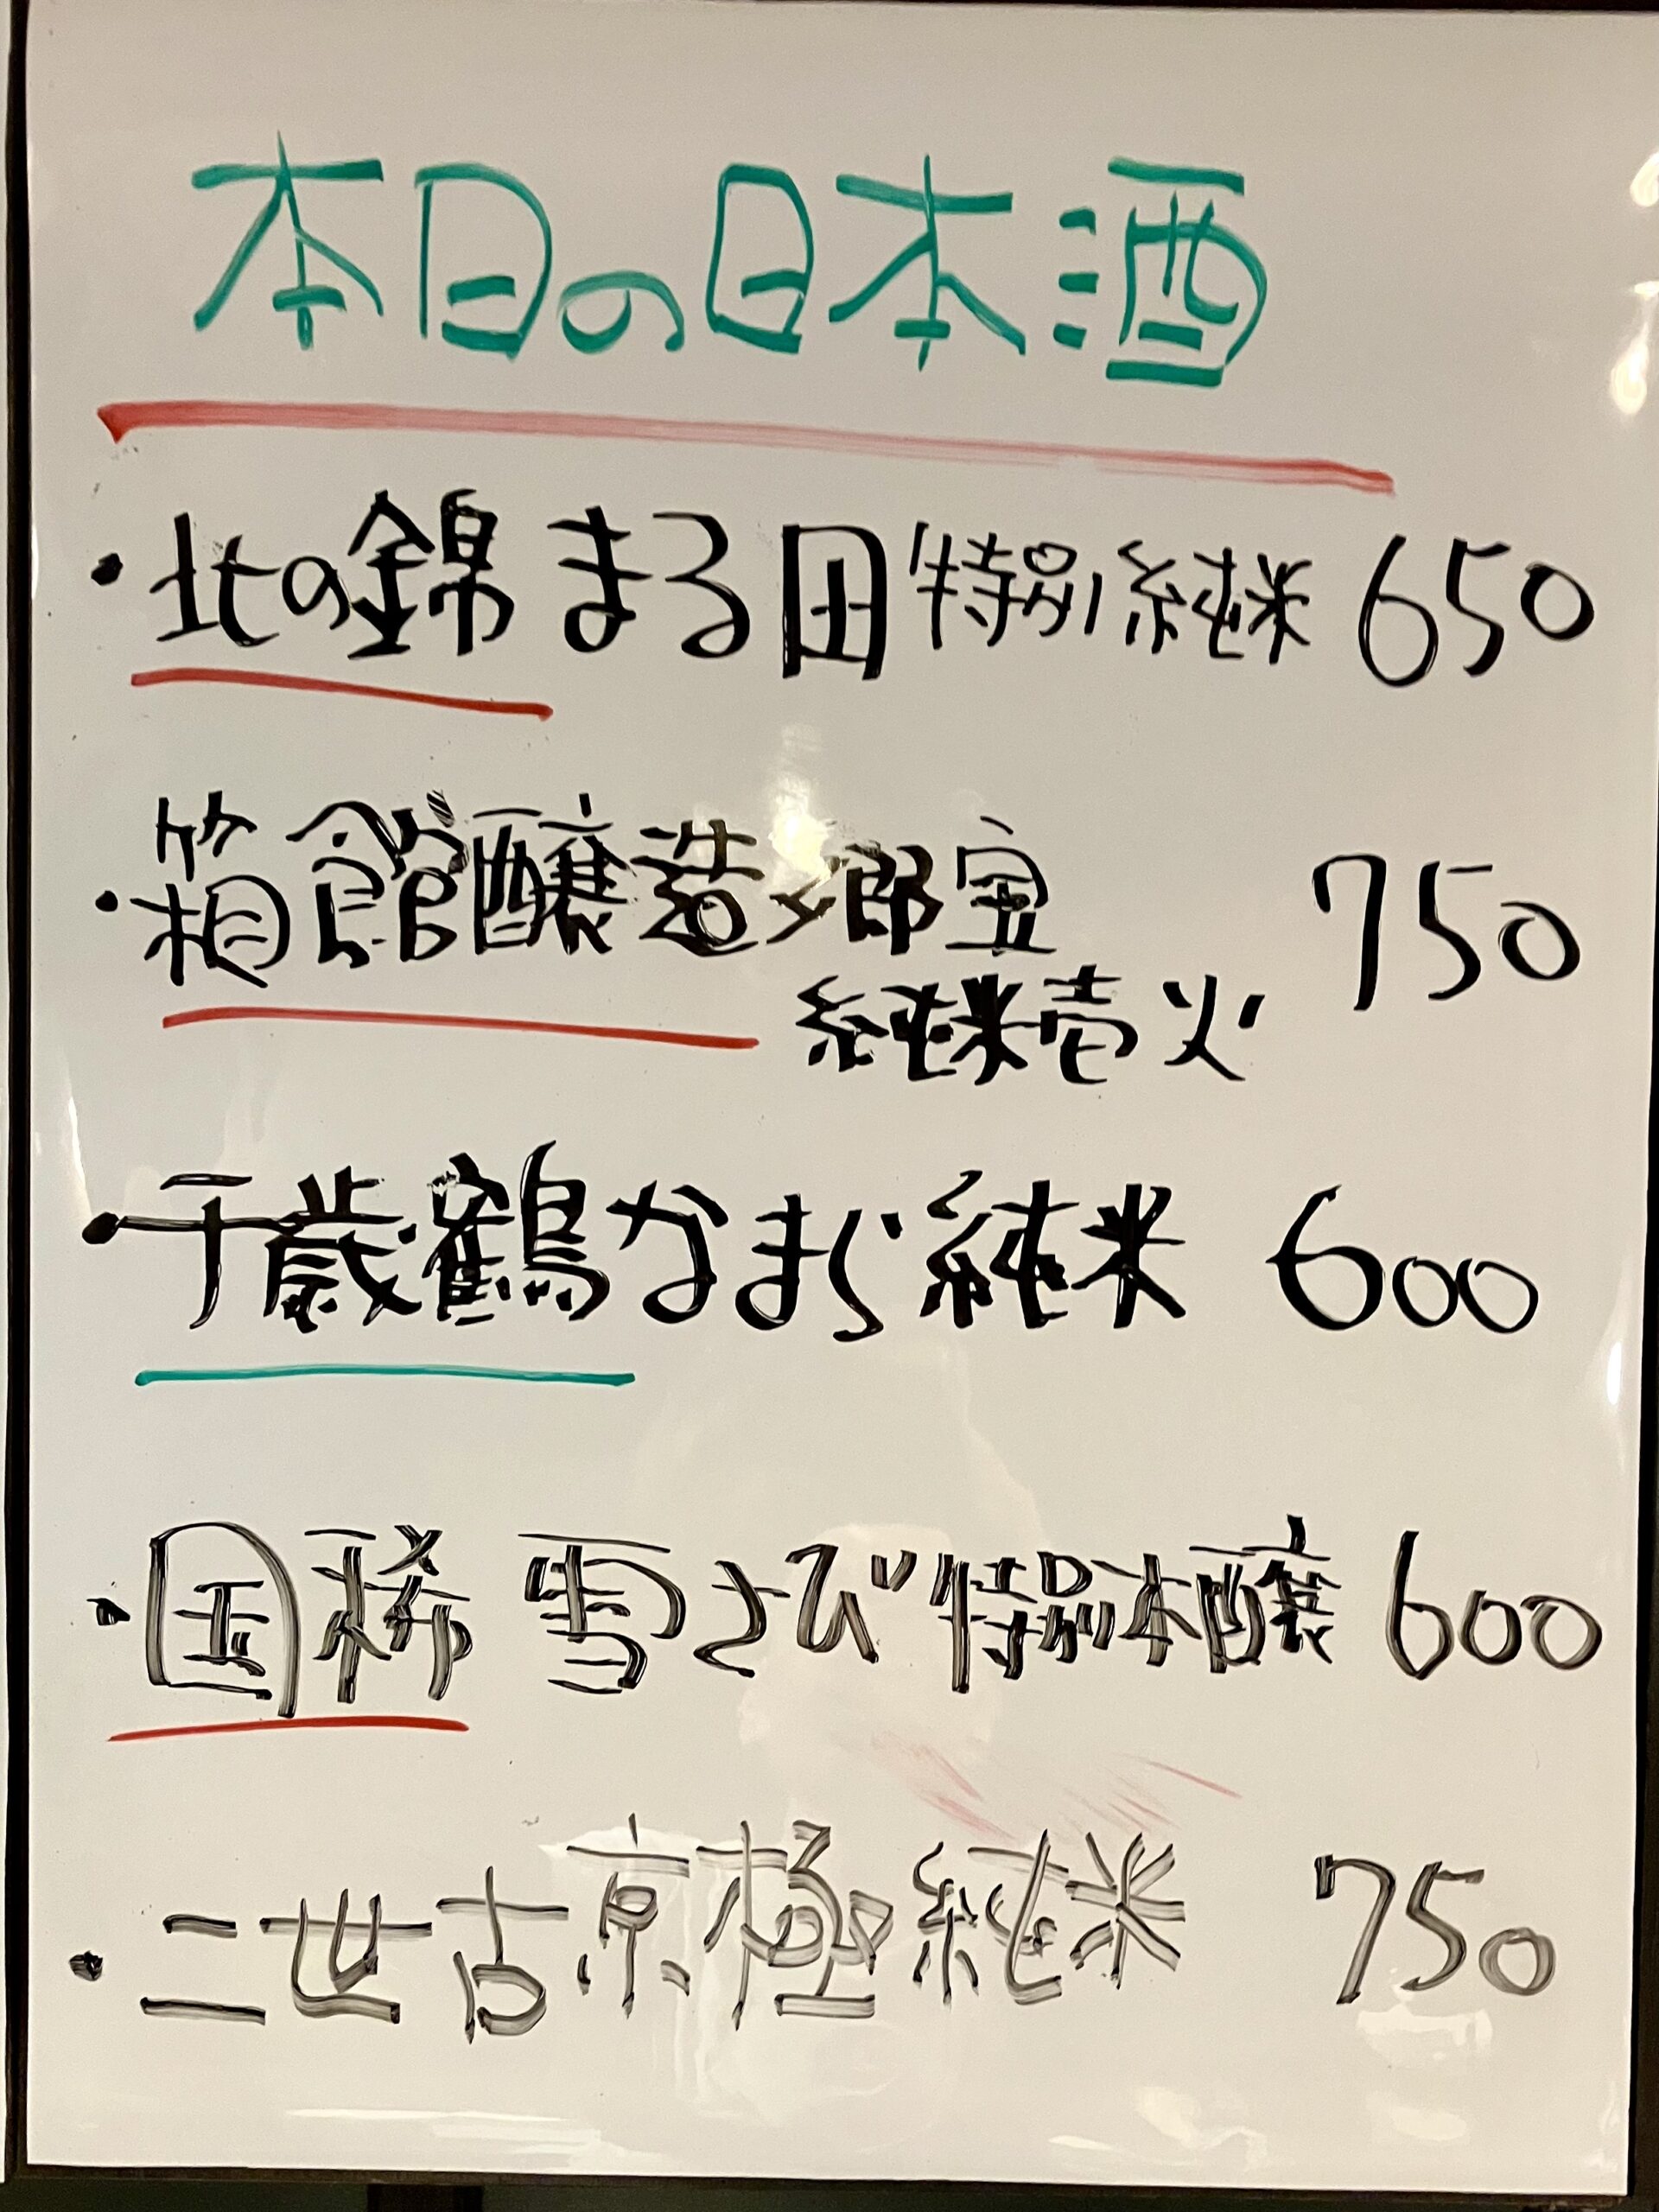 本日の日本酒
・北の錦 まる田 特別純米 650
・箱館醸造 郷宝 750
純米壱火
・千歳鶴 なまら純米 600
・国稀 雪さび 特別本醸 600
・二世古 京極 純米 750